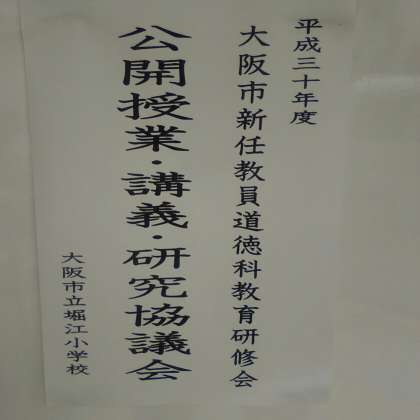 平成三十年度
大阪市新任教員道徳科教育研修会
公開授業・講義・研究協議会
大阪市立堀江小学校